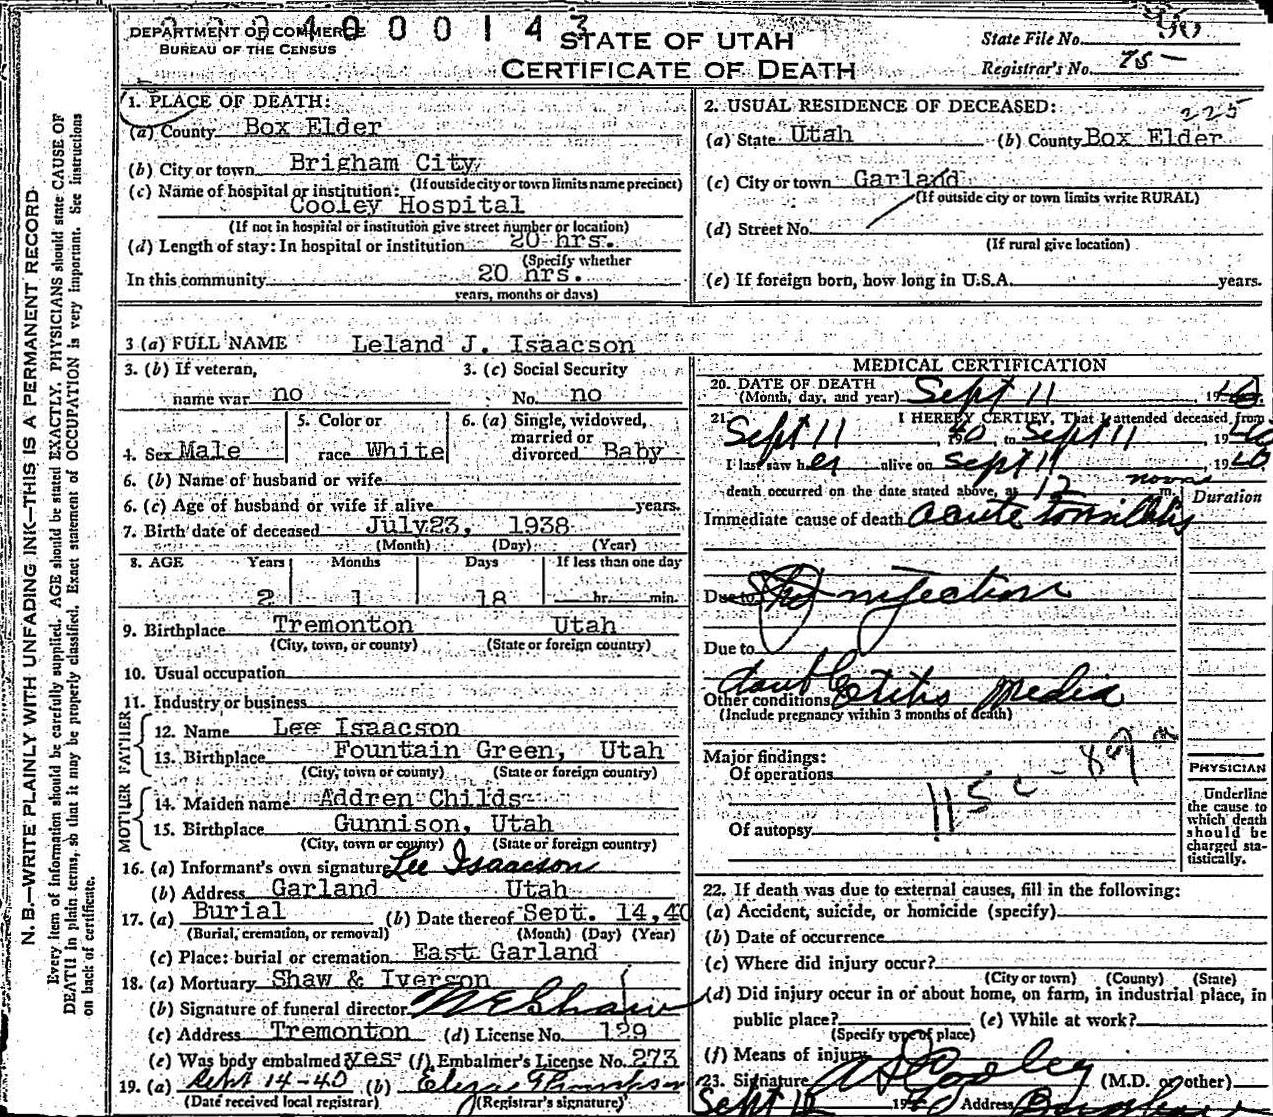 DEPARTMENT OF COMMERCE
BUREAU OF THE CENSUS
STATE OF UTAH
CERTIFICATE OF DEATH
State File No. 90
Registrar's No. 75
N. B.—WRITE PLAINLY WITH UNFADING INK—THIS IS A PERMANENT RECORD
Every item of information should be carefully supplied. AGE should be stated EXACTLY. PHYSICIANS should state CAUSE OF
DEATH in plain terms, so that it may be properly classified. Exact statement of OCCUPATION is very important. See instructions
on back of certificate.
1. PLACE OF DEATH:
(a) County Box Elder
(b) City or town Brigham City
(If outside city or town limits name precinct)
(c) Name of hospital or institution:
Cooley Hospital
(If not in hospital or institution give street number or location)
(d) Length of stay: In hospital or institution 20 hrs.
(Specify whether
In this community 20 hrs.
years, months or days)
2. USUAL RESIDENCE OF DECEASED:
225
(a) State Utah (b) County Box Elder
(c) City or town Garland
(If outside city or town limits write RURAL)
(d) Street No.
(If rural give location)
(e) If foreign born, how long in U.S.A. years.
3 (a) FULL NAME Leland J. Isaacson
3. (b) If veteran, 3. (c) Social Security
name war no No. no
4. Sex Male 5. Color or race White 6. (a) Single, widowed, married or divorced Baby
6. (b) Name of husband or wife
6. (c) Age of husband or wife if alive years.
7. Birth date of deceased July 23, 1938
(Month) (Day) (Year)
8. AGE Years Months Days If less than one day
2 1 18 hr. min.
9. Birthplace Tremonton Utah
(City, town, or county) (State or foreign country)
10. Usual occupation
11. Industry or business
FATHER
12. Name Lee Isaacson
13. Birthplace Fountain Green, Utah
(City, town or county) (State or foreign country)
MOTHER
14. Maiden name Addren Childs
15. Birthplace Gunnison, Utah
(City, town or county) (State or foreign country)
16. (a) Informant's own signature Lee Isaacson
(b) Address Garland Utah
17. (a) Burial (b) Date thereof Sept. 14, 40
(Burial, cremation, or removal) (Month) (Day) (Year)
(c) Place: burial or cremation East Garland
18. (a) Mortuary Shaw & Iverson
(b) Signature of funeral director Shaw
(c) Address Tremonton (d) License No. 129
(e) Was body embalmed yes (f) Embalmer's License No. 273
19. (a) Sept 14-40 (b)
(Date received local registrar) (Registrar's signature)
MEDICAL CERTIFICATION
20. DATE OF DEATH Sept 11, 1940
(Month, day, and year)
21. I HEREBY CERTIFY, That I attended deceased from
Sept 11, 1940, to Sept 11 1940
I last saw her alive on Sept 11, 1940
death occurred on the date stated above, at 12 noon m.
Duration
Immediate cause of death acute tonsillitis
Due to infection
Due to
Other conditions double Otitis Media
(Include pregnancy within 3 months of death)
Major findings:
Of operations
115c - 89
Of autopsy
PHYSICIAN
Underline
the cause to
which death
should be
charged sta-
tistically.
22. If death was due to external causes, fill in the following:
(a) Accident, suicide, or homicide (specify)
(b) Date of occurrence
(c) Where did injury occur?
(City or town) (County) (State)
(d) Did injury occur in or about home, on farm, in industrial place, in
public place? (e) While at work?
(Specify type of place)
(f) Means of injury
23. Signature Cooley (M.D. or other)
Sept 19 Address